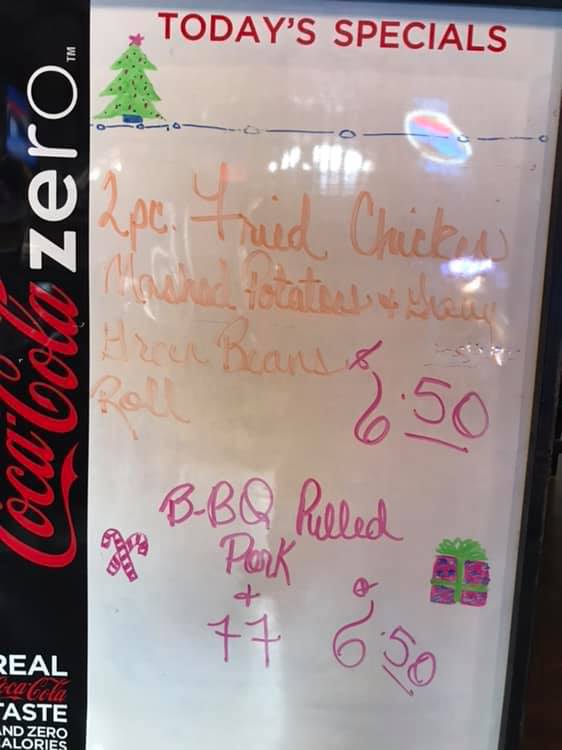 TODAY'S SPECIALS
2pc. Fried Chicken
Mashed Potatoes & Gravy
Green Beans &
Roll
6.50
B-BQ Pulled
Pork
+
77
6.50
Coca-Cola zero™
REAL
Coca-Cola
TASTE
AND ZERO
CALORIES